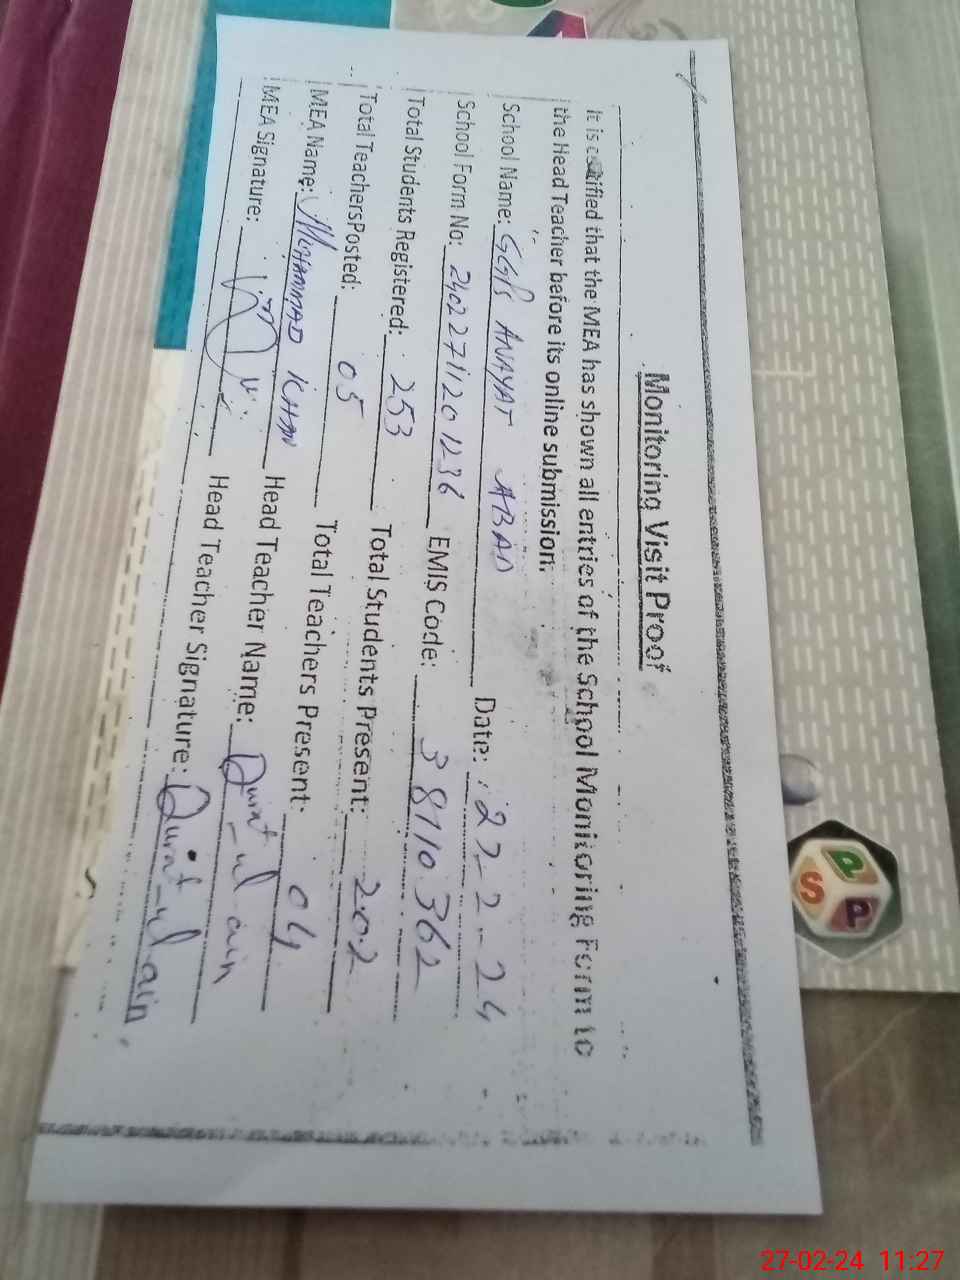 Monitoring Visit Proof
It is certified that the MEA has shown all entries of the School Monitoring Form to
the Head Teacher before its online submission.
School Name: GGPS ANAYAT ABAD Date: 27-2-24
School Form No: 24022711201236 EMIS Code: 38110362
Total Students Registered: 253 Total Students Present: 202
Total Teachers Posted: 05 Total Teachers Present: 04
MEA Name: MUHAMMAD KHAN Head Teacher Name: Qurat-ul ain
MEA Signature: Head Teacher Signature: Qurat-ul ain
P
S
P
27-02-24 11:27